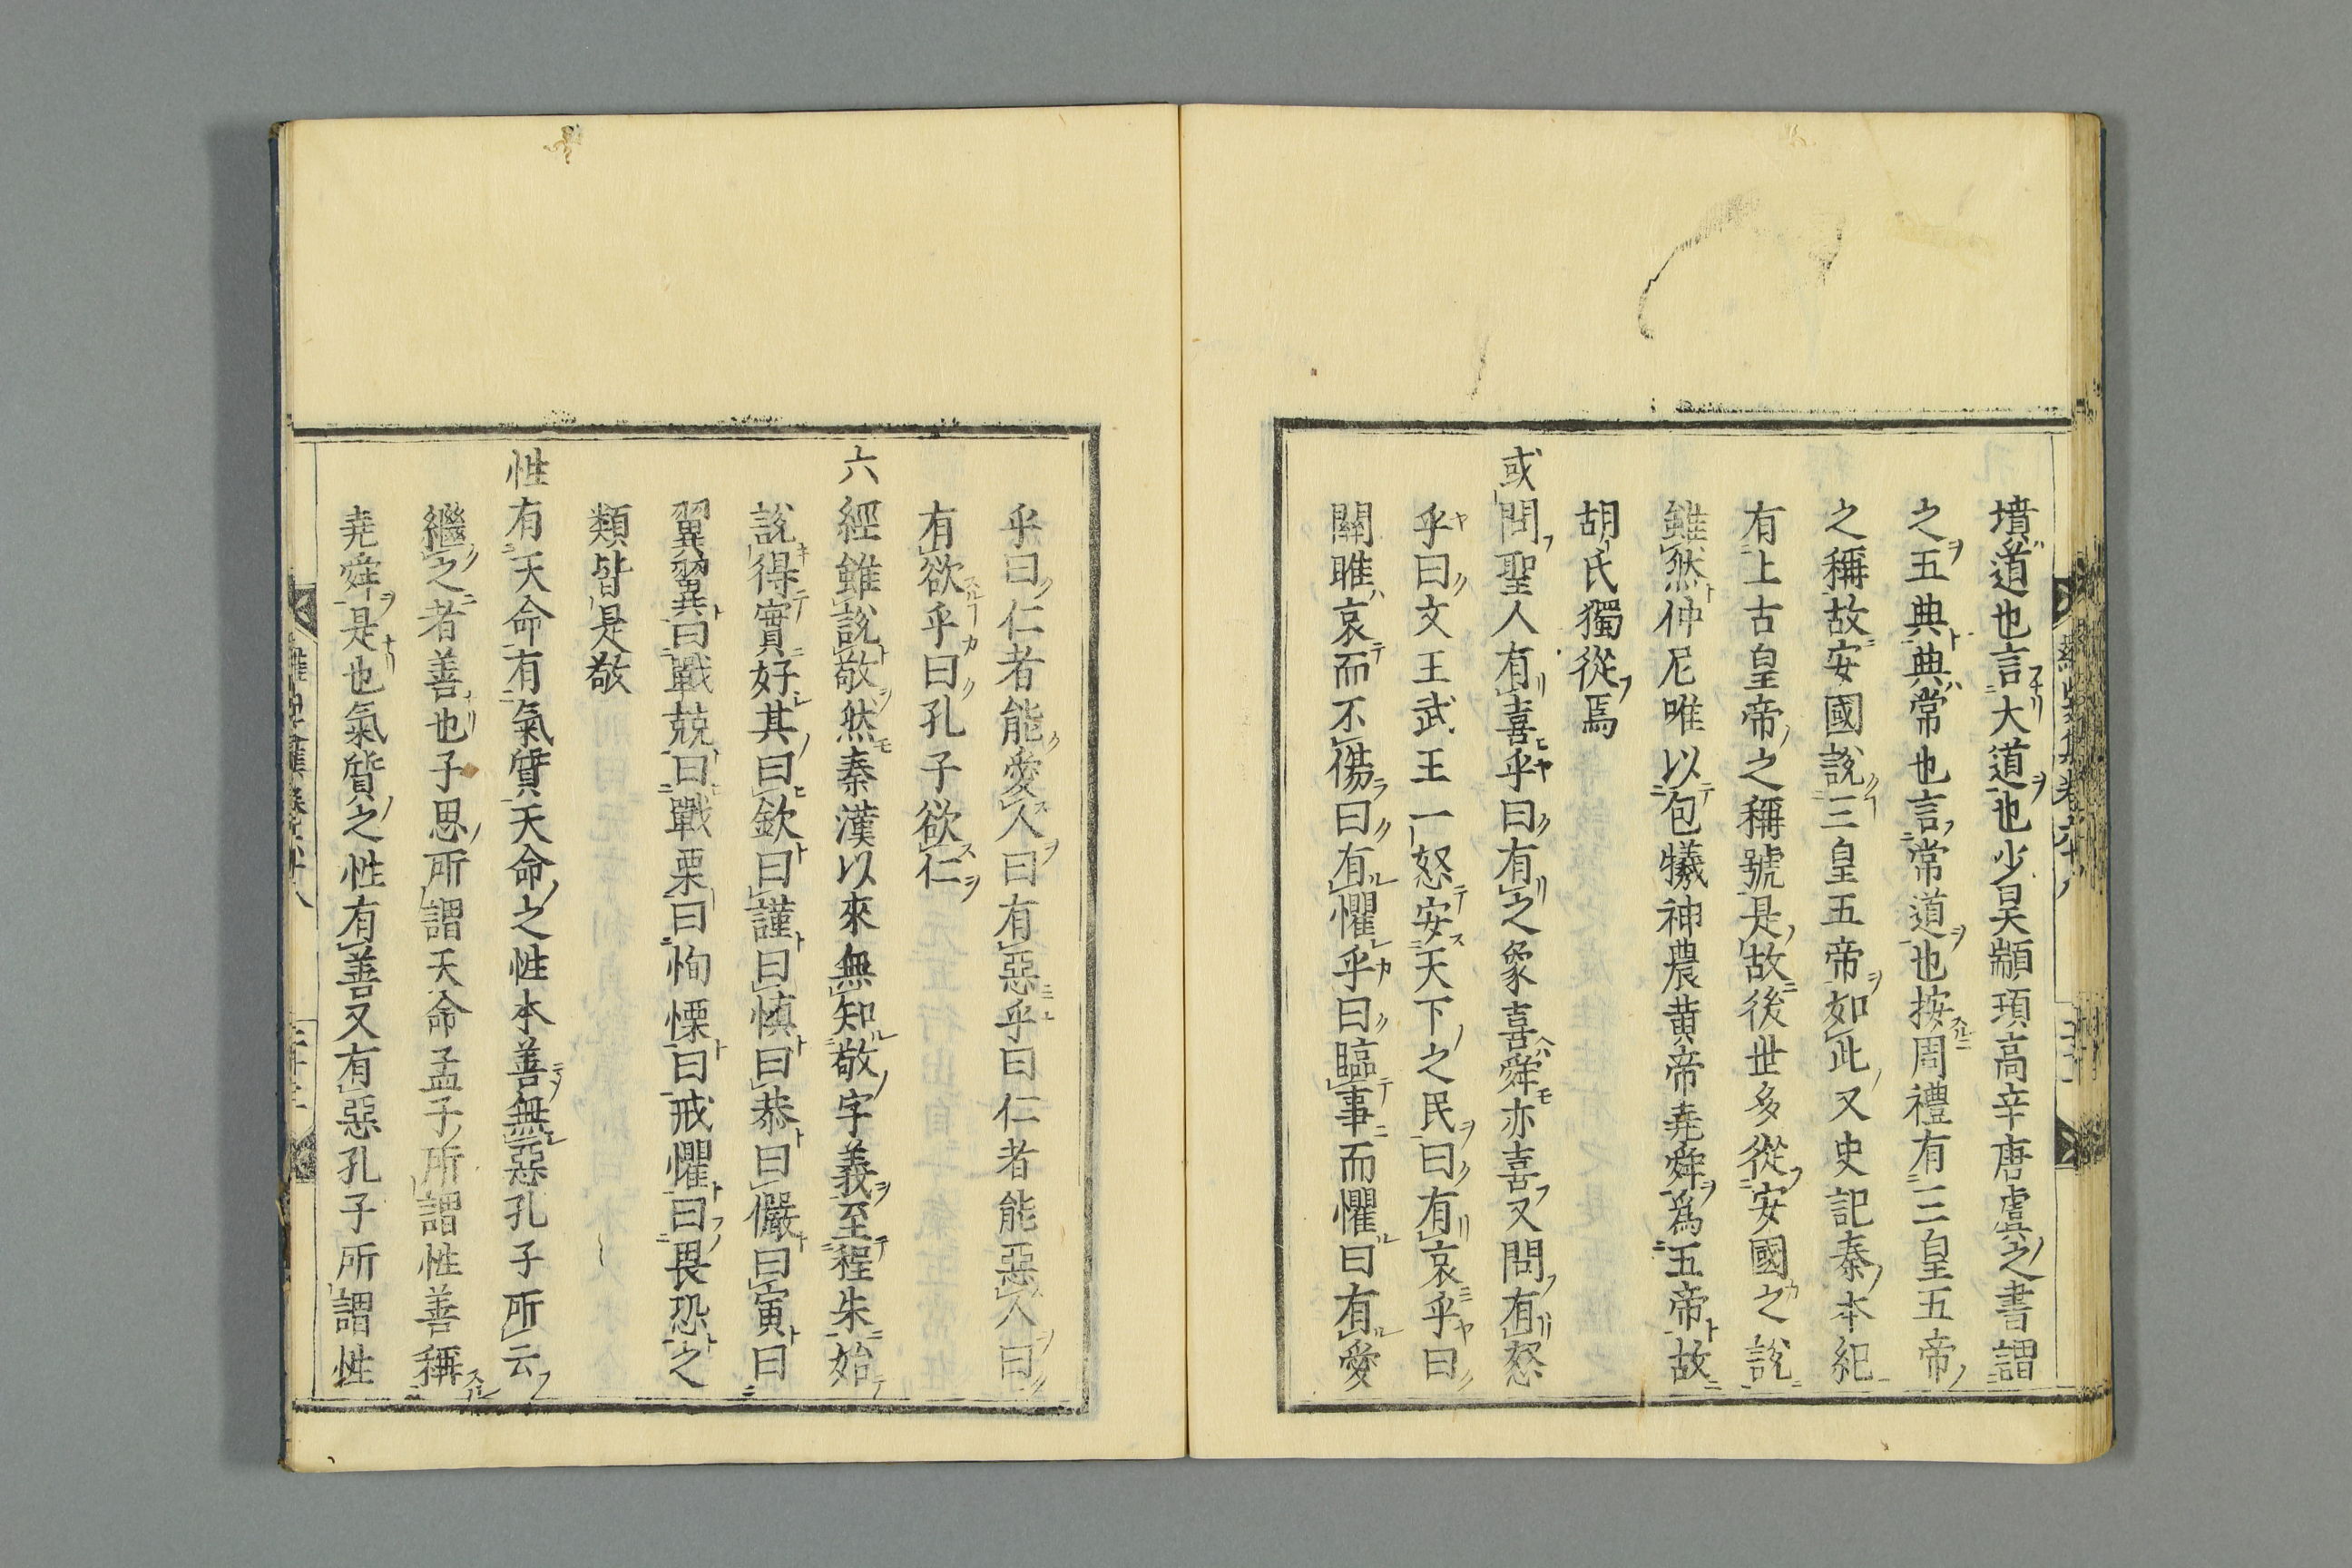 墳道也言大道也少昊顓頊高辛唐虞之書謂
之五典典常也言常道也按周禮有三皇五帝
之稱故安國說三皇五帝如此又史記秦本紀
有上古皇帝之稱號是故後世多從安國之說
雖然仲尼唯以包犧神農黄帝堯舜爲五帝故
胡氏獨從焉
或問聖人有喜乎曰有之象喜舜亦喜又問有怒
乎曰文王武王一怒安天下之民曰有哀乎曰
關雎哀而不傷曰有懼乎曰臨事而懼曰有愛
乎曰仁者能愛人曰有惡乎曰仁者能惡人曰
有欲乎曰孔子欲仁
六經雖說敬然秦漢以來無知敬字義至程朱始
說得實好其曰欽曰謹曰慎曰恭曰儼曰寅曰
翼翼曰戰兢曰戰栗曰恂慄曰戒懼曰畏恐之
類皆是敬
性有天命有氣質天命之性本善無惡孔子所云
繼之者善也子思所謂天命孟子所謂性善稱
堯舜是也氣質之性有善又有惡孔子所謂性